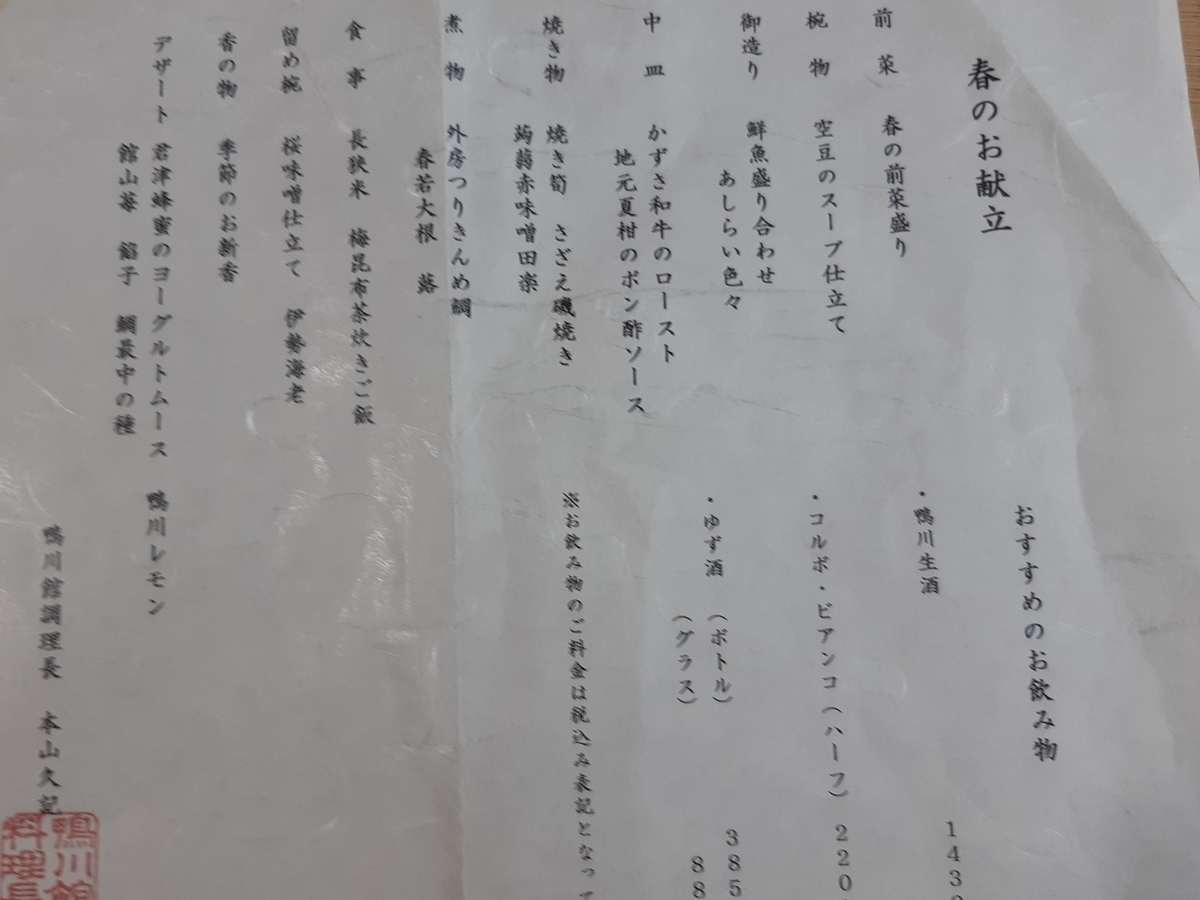 春のお献立
前菜 春の前菜盛り
椀物 空豆のスープ仕立て
御造り 鮮魚盛り合わせ
あしらい色々
中皿 かずさ和牛のロースト
地元夏柑のポン酢ソース
焼き物 焼き筍 さざえ磯焼き
蒟蒻赤味噌田楽
煮物 外房つりきんめ鯛
春若大根 蕗
食事 長狭米 梅昆布茶炊きご飯
留め椀 桜味噌仕立て 伊勢海老
香の物 季節のお新香
デザート 君津蜂蜜のヨーグルトムース 鴨川レモン
館山苺 餡子 鯛最中の種
おすすめのお飲み物
・鴨川生酒 143
・コルボ・ビアンコ（ハーフ） 220
・ゆず酒 （ボトル） 385
（グラス） 88
※お飲み物のご料金は税込み表記となって
鴨川館調理長 本山久記
鴨川館
料理長